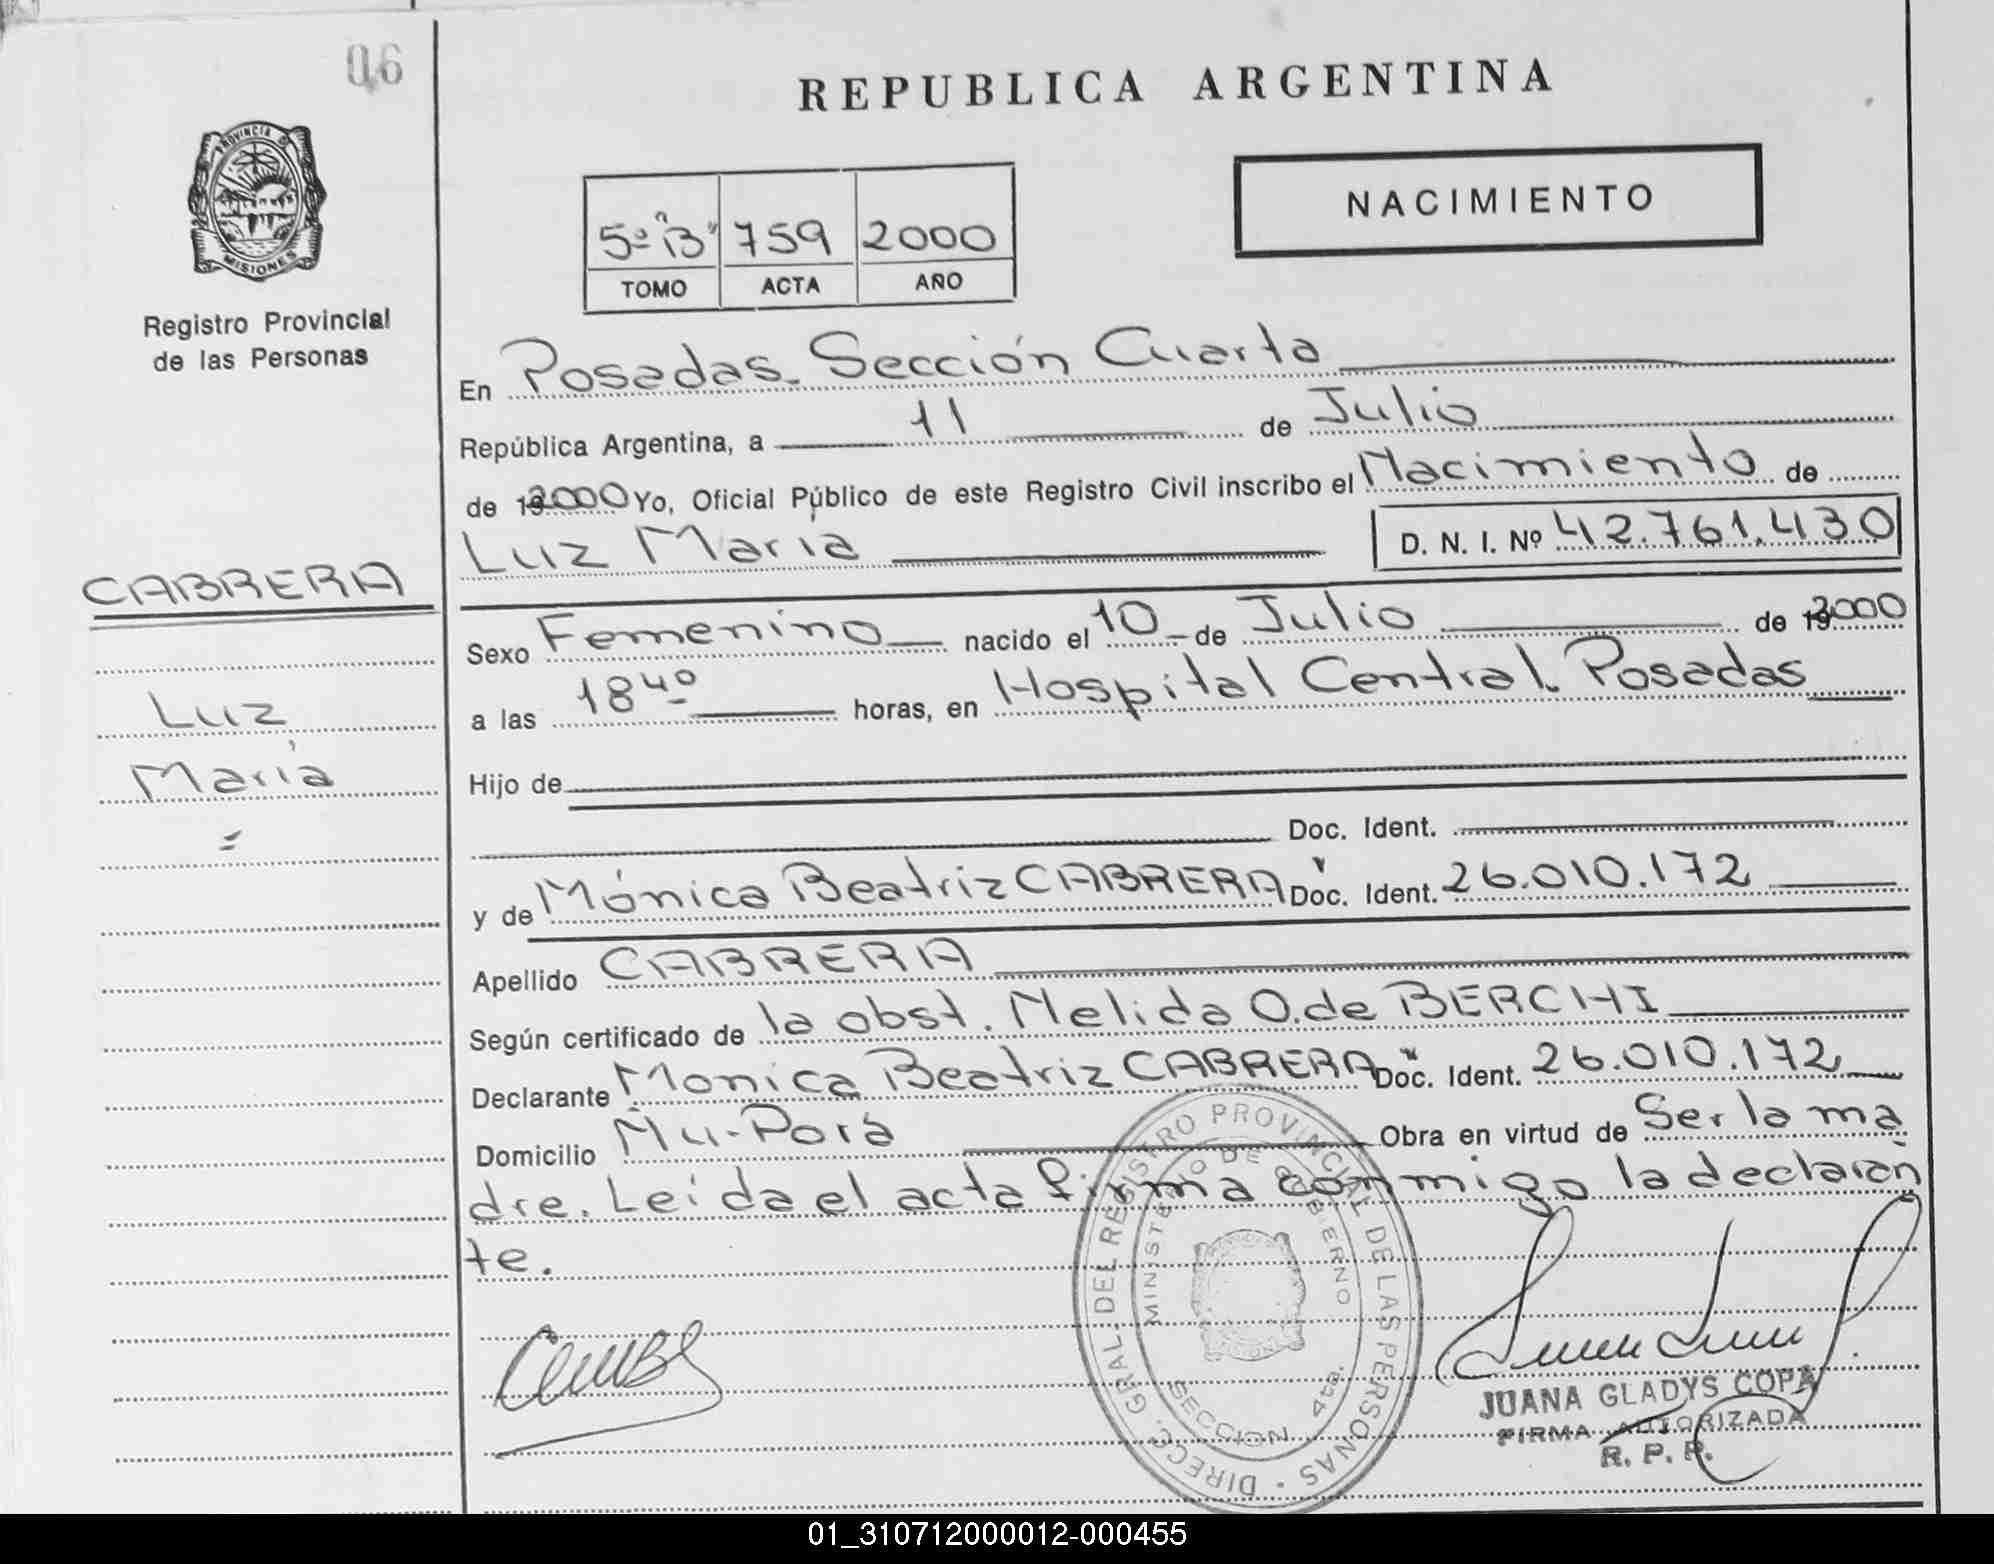 06
REPUBLICA ARGENTINA
PROVINCIA DE
MISIONES
Registro Provincial
de las Personas
NACIMIENTO
5º "B" 759 2000
TOMO ACTA AÑO
En Posadas. Sección Cuarta
República Argentina, a 11 de Julio
de 192000 Yo, Oficial Público de este Registro Civil inscribo el Nacimiento de
Luz María D. N. I. Nº 42.761.430
CABRERA
Luz
María
=
Sexo Femenino nacido el 10 de Julio de 192000
a las 18⁴⁰ horas, en Hospital Central. Posadas
Hijo de
Doc. Ident.
y de Mónica Beatriz CABRERA Doc. Ident. 26.010.172
Apellido CABRERA
Según certificado de la obst. Nelida O. de BERCHI
Declarante Monica Beatriz CABRERA Doc. Ident. 26.010.172
Domicilio Ñu-Porá Obra en virtud de Ser la ma
dre. Leída el acta firma conmigo la declaran
te.
DIRECC. GRAL. DEL REGISTRO PROVINCIAL DE LAS PERSONAS
MINISTERIO DE GOBIERNO
SECCION 4ta.
JUANA GLADYS COPA
FIRMA AUTORIZADA
R. P. P.
01_310712000012-000455